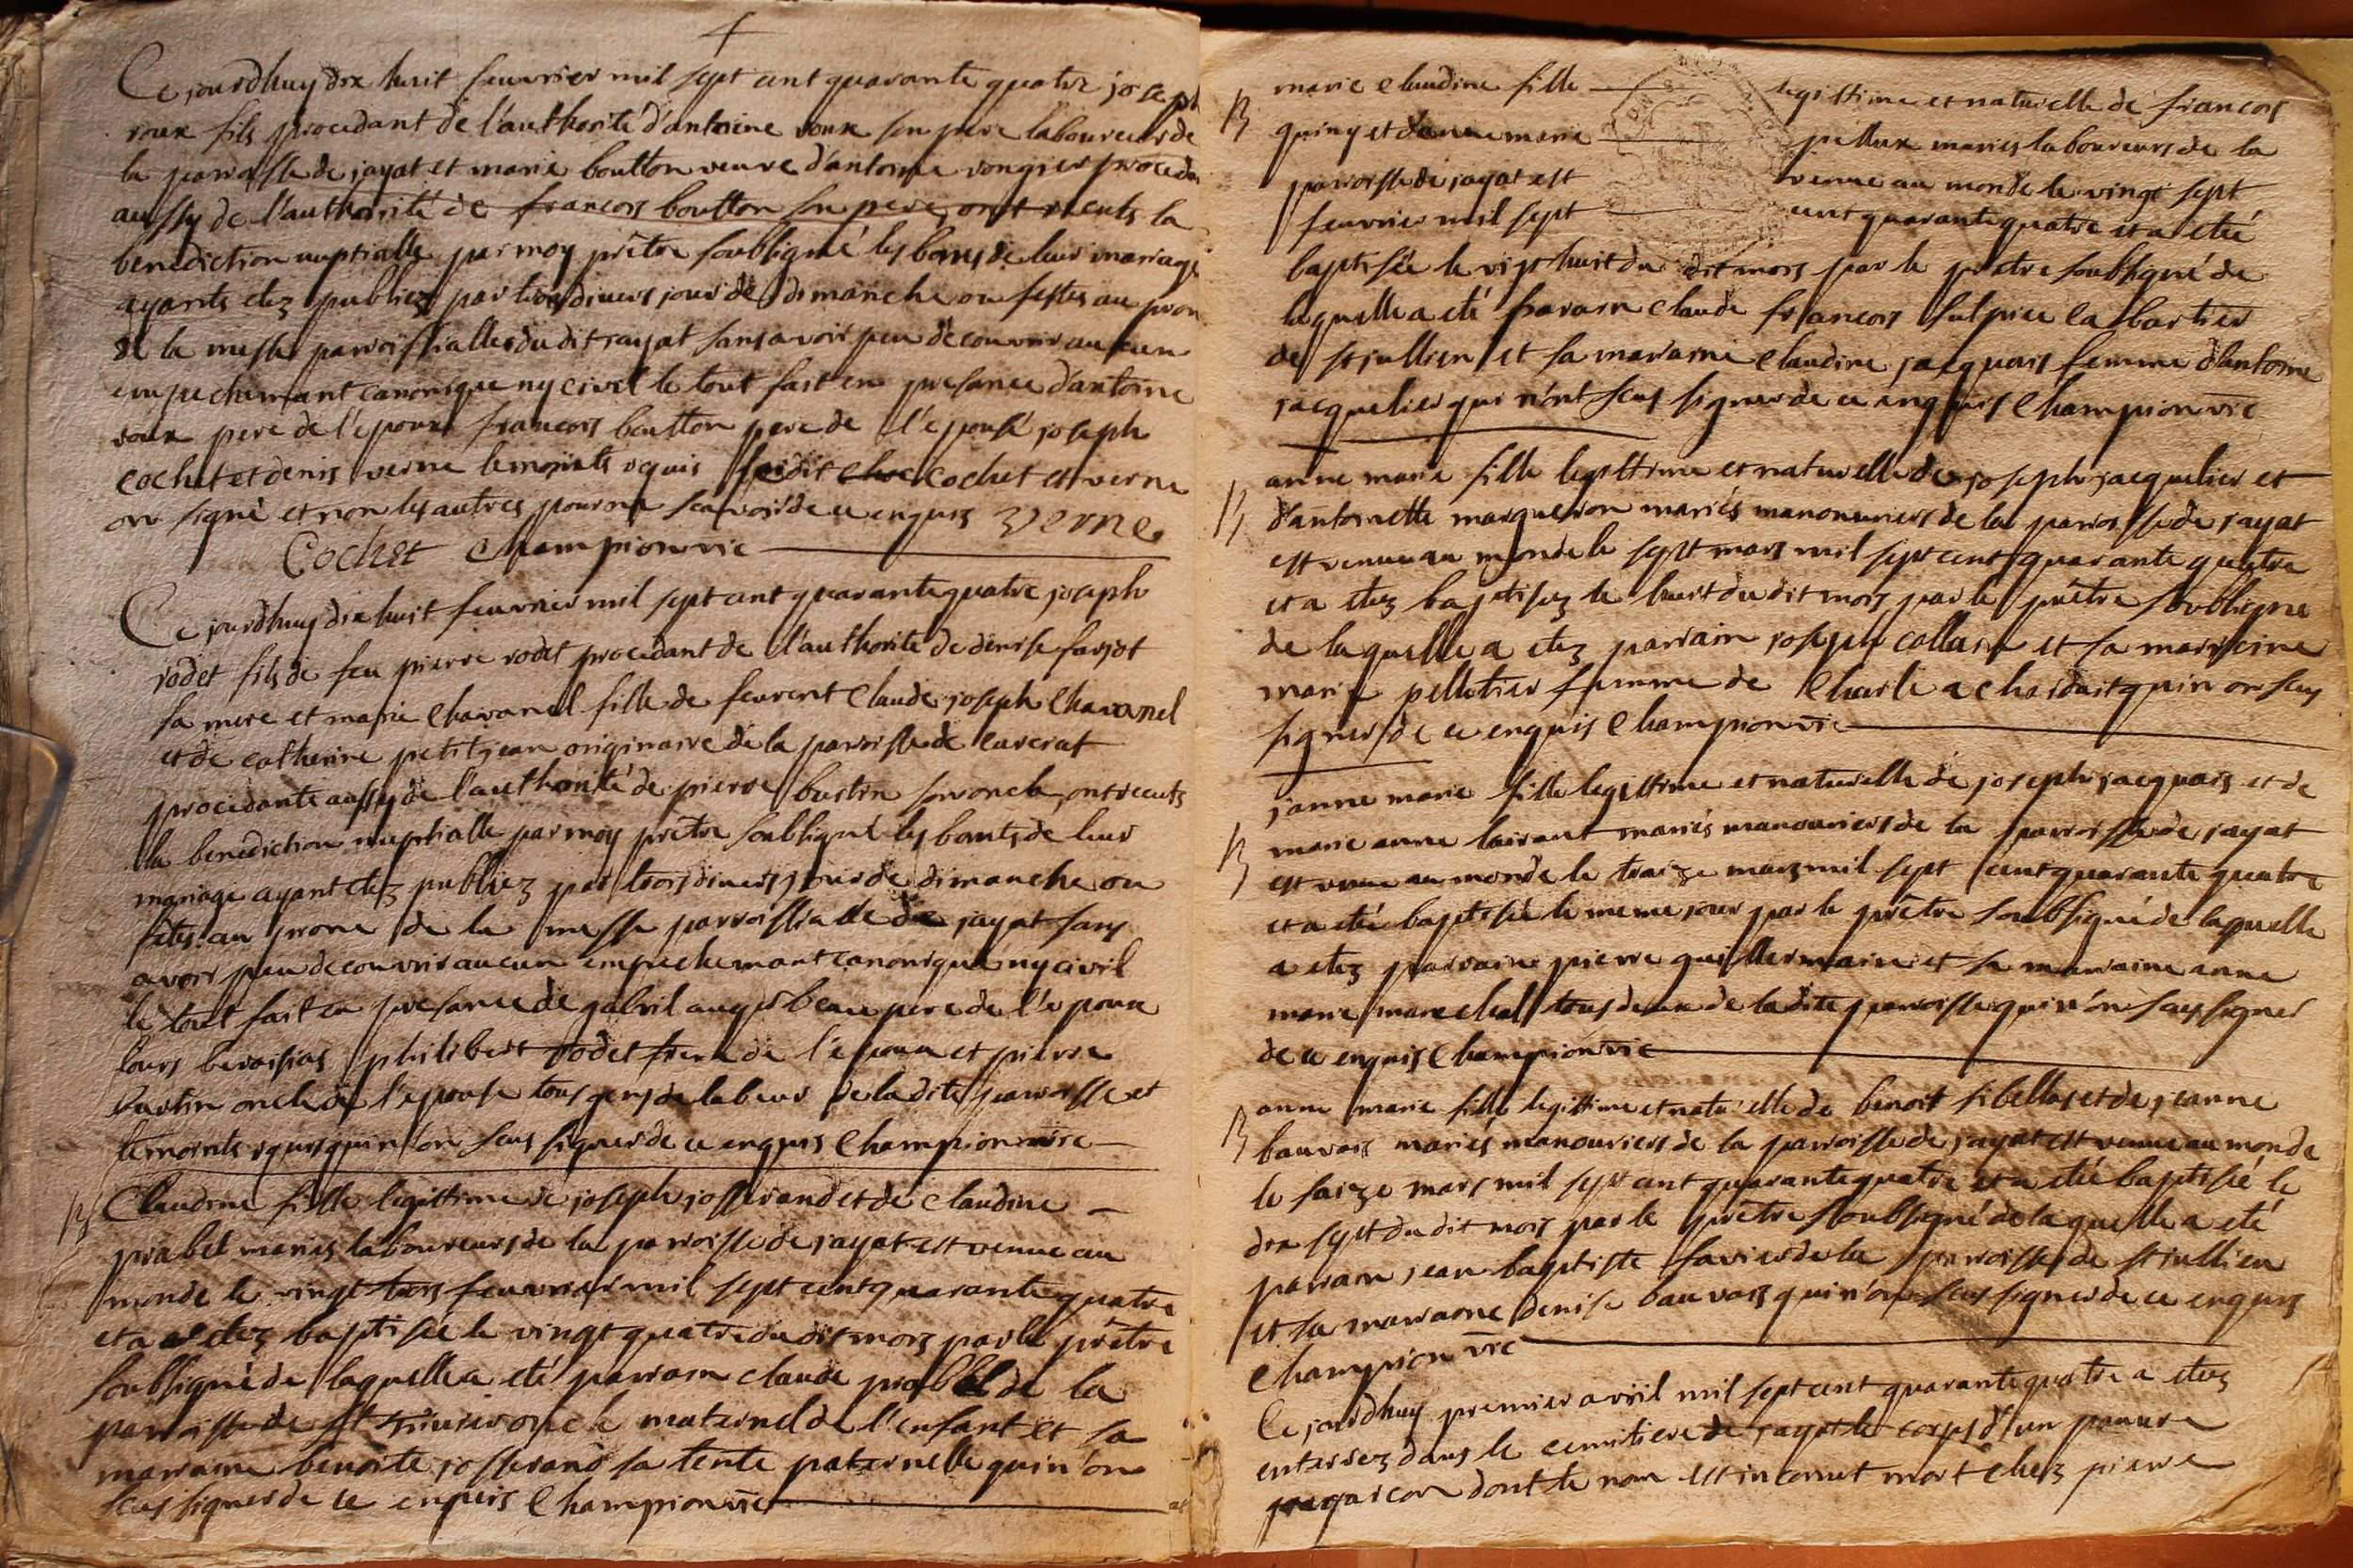 Ce jourdhuy dix huit feuvrier mil sept cent quarante quatre joseph
roux fils procedant de l'authorité d'antoine roux son pere laboureurs de
la parroisse de jayat et marie boutton veuve d'antoine vongier proceda
aussy de l'authorité de francois boutton son pere, ont recents la
benediction nuptialle par moy prêtre soubsigné les bans de leur mariage
ayants etez publiez par trois divers jour de dimanche ou festes au pron
de la messe parroissialle du dit jayat sans avoir peu decouvrir aucun
empechemant canonique ny civil le tout fait en presance d'antoine
roux pere de l'epoux francois boutton pere de l'epouse joseph
cochet et denis verne temoints requis cochet et verne
on signé et non les autres pour ne scavoir de ce enquis verne
Cochet Champion vic
Ce jourdhuy dix huit feuvrier mil sept cent quarante quatre joseph
rodet fils de feu pierre rodet procedant de l'authorite de denise farjot
sa mere et marie Chavanel fille de feurent Claude joseph Chavanel
et de catherine petitjean originaire de la parroisse de
procedante aussy de l'authorité de pierre bustin son oncle, ont recents
la benediction nuptialle par moy prêtre soubsigné les bants de leur
mariage ayant etez publiez par trois divers jour de dimanche ou
fêtes au prone de la messe parroissialle de jayat sans
avoir peu decouvrir aucun empechemant canonique ny civil
le tout fait en presance de gabril beau pere de l'epoux
louis philibert rodet frere de l'epoux et pierre
bustin oncle de l'epouse tous gens de labeur de la dite parroisse et
temoints requis qui n'on seus signer de ce enquis Champion vic
B Claudine fille legittime de joseph josserand et de Claudine
prabel mariés laboureurs de la parroisse de jayat est venue au
monde le vingt trois feuvrier mil sept cent quarante quatre
et a etez baptisée le vingt quatre du dit mois par le prêtre
soubsigné de laquelle a eté parrain claude prabel de la
parroisse de st trivier oncle maternel de l'enfant et sa
marraine benoite josserand sa tente paternelle qui n'on
seus signer de ce enquis Champion vic
marie claudine fille legittime et naturelle de francois
B quiny et d'anne marie pillux mariés laboureurs de la
parroisse de jayat est venue au monde le vingt sept
feuvrier mil sept cent quarante quatre et a eté
baptisée le vigt huit du dit mois par le prêtre soubsigné de
laquelle a eté parrain claude francois sulpice
de st jullien et sa maraine Claudine jacquois femme d'antoine
jacquelier qui n'ont seus signer de ce enquis Champion vic
anne marie fille legittime et naturelle de joseph jacquelier et
B d'antoinette margueron mariés manouvriers de la parroisse de jayat
est venue au monde le sept mars mil sept cent quarante quatre
et a etez baptisez le huit du dit mois par le prêtre soubsigné
de laquelle a etez parrain joseph collain et sa marreine
marie pelletier femme de Charle qui n'on seus
signer de ce enquis Champion vic
janne marie fille legittime et naturelle de joseph jacquois et de
B marie anne lairant mariés manouvriers de la parroisse de jayat
est venue au monde le traize mars mil sept cent quarante quatre
et a eté baptisée le meme jour par le prêtre soubsigné de laquelle
a etez parrain pierre guillermain et sa marraine anne
marie marechal tous deux de la dite parroisse qui n'on seus signer
de ce enquis Champion vic
B anne marie fille legittime et naturelle de benoit sibellas et de jeanne
bauvois mariés manouvriers de la parroisse de jayat est venue au monde
le saize mars mil sept cent quarante quatre et a eté baptisée le
dix sept du dit mois par le prêtre soubsigné de laquelle a eté
parrain jean baptiste favier de la parroisse de st jullien
et sa marraine denise bauvois qui n'on seus signer de ce enquis
Champion vic
Ce jourdhuy premier avril mil sept cent quarante quatre a etez
enterrez dans le cemitiere de jayat le corps d'un pauvre
garcon dont le nom est inconnut mort chez pierre